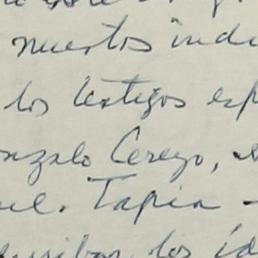 nuestros indi
los testigos esp
onzalo Cerezo,
uel. Tapia -
los id